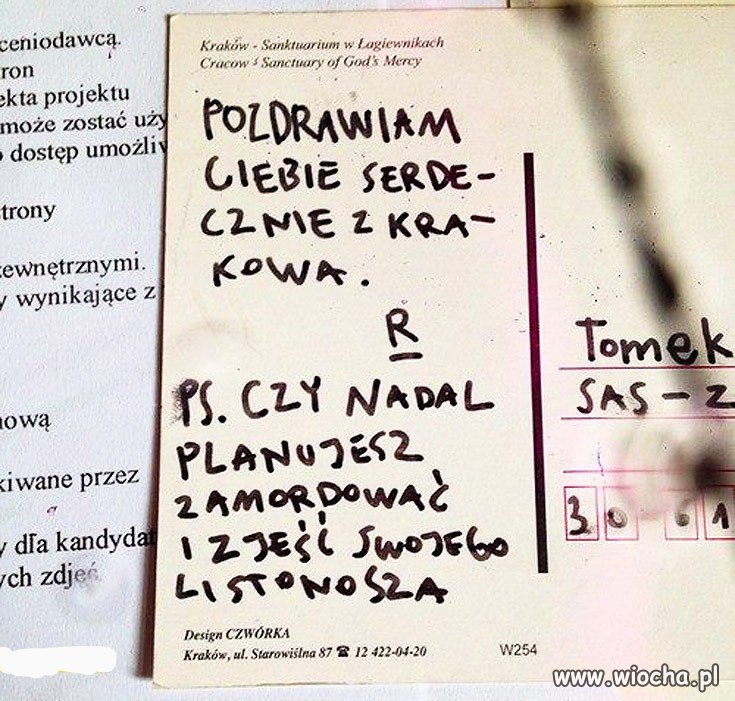 ceniodawcą.
ron
ekta projektu
może zostać uży
dostęp umożliw
trony
ewnętrznymi.
y wynikające z
nową
kiwane przez
y dla kandydat
ych zdjęć
Kraków - Sanktuarium w Łagiewnikach
Cracow - Sanctuary of God's Mercy
POZDRAWIAM
CIEBIE SERDE-
CZNIE Z KRA-
KOWA.
R
PS. CZY NADAL
PLANUJESZ
ZAMORDOWAĆ
I ZJEŚĆ SWOJEGO
LISTONOSZA
Design CZWÓRKA
Kraków, ul. Starowiślna 87 ☎ 12 422-04-20
W254
Tomek
SAS-Z
30 61
www.wiocha.pl